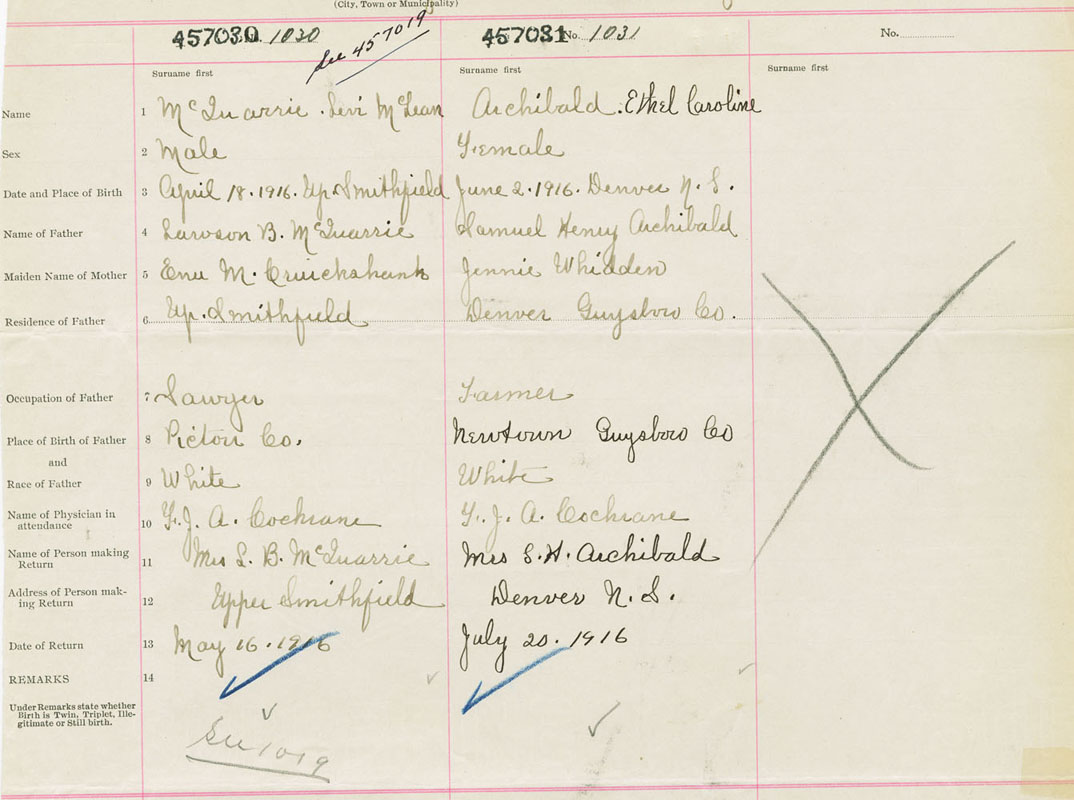 (City, Town or Municipality)
457030 1030 See 457019 457031 No. 1031 No.
Surname first Surname first Surname first
Name 1 McQuarrie . Levi McLean Archibald . Ethel Caroline
Sex 2 Male Female
Date and Place of Birth 3 April 18. 1916. Up. Smithfield June 2. 1916. Denver N. S.
Name of Father 4 Lawson B. McQuarrie Samuel Henry Archibald
Maiden Name of Mother 5 M. Cruickshank Jennie Whidden
Residence of Father 6 Up. Smithfield Denver Guysboro Co.
Occupation of Father 7 Sawyer Farmer
Place of Birth of Father 8 Pictou Co. Newtown Guysboro Co
and
Race of Father 9 White White
Name of Physician in
attendance 10 F. J. A. Cochrane F. J. A. Cochrane
Name of Person making
Return 11 Mrs L. B. McQuarrie Mrs S. H. Archibald
Address of Person mak-
ing Return 12 Upper Smithfield Denver N. S.
Date of Return 13 May 16. 1916 July 20. 1916
REMARKS 14
Under Remarks state whether
Birth is Twin, Triplet, Ille-
gitimate or Still birth.
See 1019